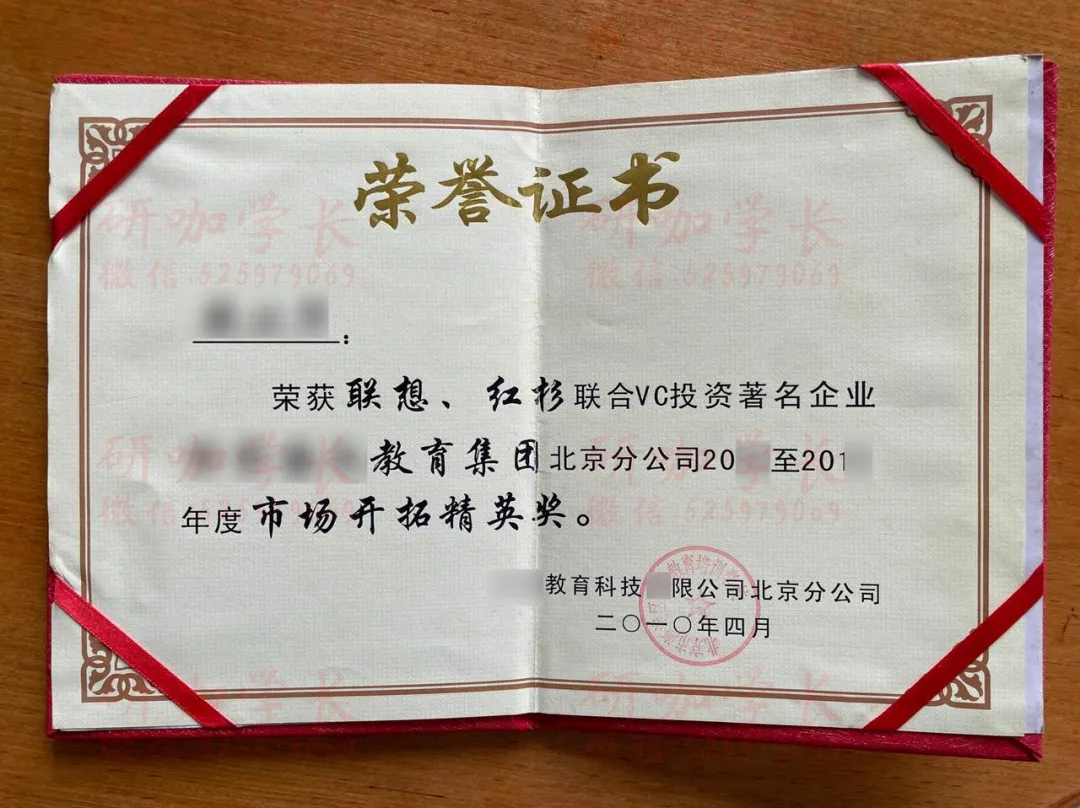 荣誉证书
研咖学长 研咖学长
微信:525979069 微信:525979069
:
荣获联想、红杉联合VC投资著名企业
教育集团北京分公司20 至201
年度市场开拓精英奖。
研咖学长 研咖学长
微信:525979069 微信:525979069
教育科技 限公司北京分公司
二〇一〇年四月
教育培训
北京市
研咖学长 研咖学长